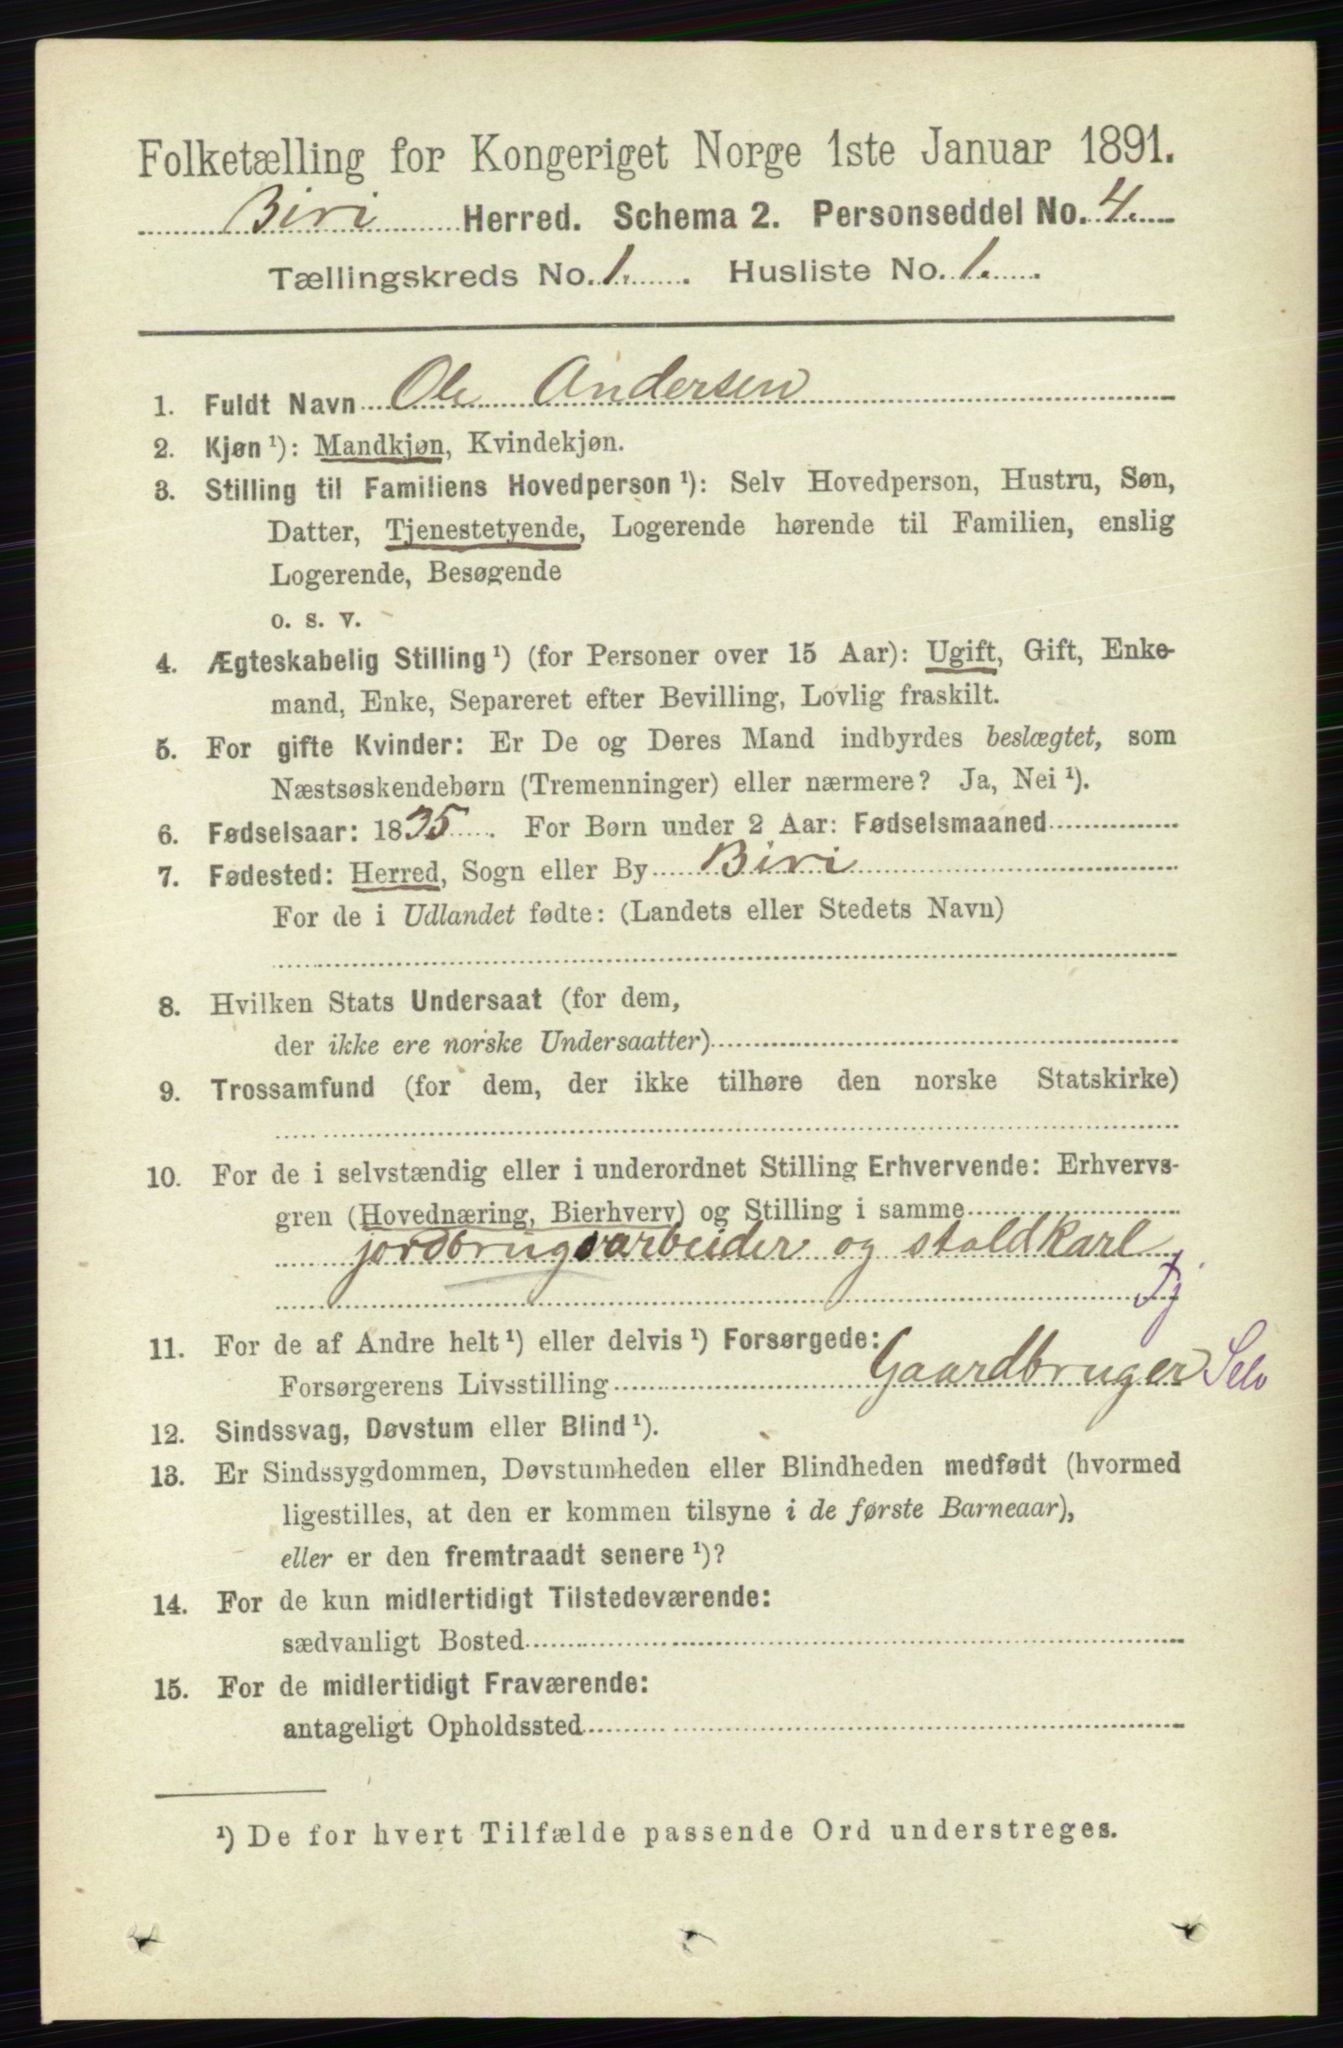 Folketælling for Kongeriget Norge 1ste Januar 1891.
Biri Herred. Schema 2. Personseddel No. 4.
Tællingskreds No. 1. Husliste No. 1.
1. Fuldt Navn Ole Andersen
2. Kjøn ¹): Mandkjøn, Kvindekjøn.
3. Stilling til Familiens Hovedperson ¹): Selv Hovedperson, Hustru, Søn,
Datter, Tjenestetyende, Logerende hørende til Familien, enslig
Logerende, Besøgende
o. s. v.
4. Ægteskabelig Stilling ¹) (for Personer over 15 Aar): Ugift, Gift, Enke-
mand, Enke, Separeret efter Bevilling, Lovlig fraskilt.
5. For gifte Kvinder: Er De og Deres Mand indbyrdes beslægtet, som
Næstsøskendebørn (Tremenninger) eller nærmere? Ja, Nei ¹).
6. Fødselsaar: 1835. For Børn under 2 Aar: Fødselsmaaned
7. Fødested: Herred, Sogn eller By Biri
For de i Udlandet fødte: (Landets eller Stedets Navn)
8. Hvilken Stats Undersaat (for dem,
der ikke ere norske Undersaatter)
9. Trossamfund (for dem, der ikke tilhøre den norske Statskirke)
10. For de i selvstændig eller i underordnet Stilling Erhvervende: Erhvervs-
gren (Hovednæring, Bierhverv) og Stilling i samme
jordbrugsarbeider og staldkarl
Tj
11. For de af Andre helt ¹) eller delvis ¹) Forsørgede:
Forsørgerens Livsstilling Gaardbruger Selv
12. Sindssvag, Døvstum eller Blind ¹).
13. Er Sindssygdommen, Døvstumheden eller Blindheden medfødt (hvormed
ligestilles, at den er kommen tilsyne i de første Barneaar),
eller er den fremtraadt senere ¹)?
14. For de kun midlertidigt Tilstedeværende:
sædvanligt Bosted
15. For de midlertidigt Fraværende:
antageligt Opholdssted
¹) De for hvert Tilfælde passende Ord understreges.